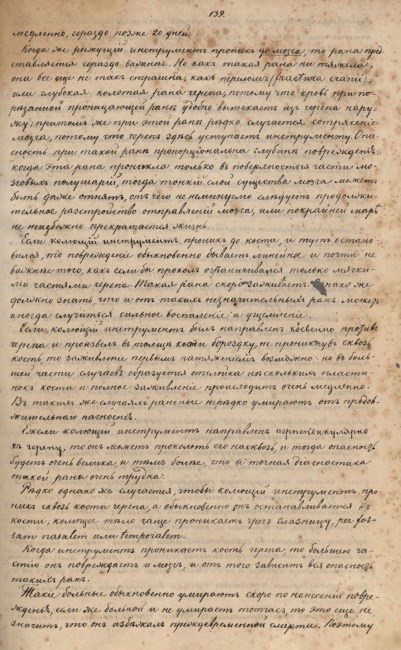 139.
медленно, гораздо позже 20 дней.
Когда же режущий инструмент проник до мозга, то рана пред
ставляется гораздо важнее. Но как такая рана ни тяжела,
она все еще не так страшна, как перелом (fractura cranii)
или глубокая колотая рана черепа, потому что кровь при по-
резанной проницающей ране удобно вытекает из черепа нару-
жу; притом же при этой ране редко случается сотрясение
мозга, потому что череп здесь уступает инструменту. Опа
сность при такой ране пропорциональна глубине повреждения:
когда эта рана проникла только в поверхностные части мо-
зговых полушарий, тогда тонкий слой существа мозга может
быть даже отнят, от чего не неминуемо следует продолжи-
тельное разстройство отправлений мозга, или по крайней мере
не неизбежно прекращается жизнь.
Если колющий инструмент проник до кости, и тут остано-
вился, то повреждение обыкновенно бывает линейное и почти не
важнее того, как если бы прокол ограничивался только мягки-
ми частями черепа. Такая рана скоро заживает. Однако же
должно знать, что и от таких незначительных ран может
иногда случиться сильное воспаление и ущемление.
Если колющий инструмент был направлен косвенно против
черепа и произвел в толще кости бороздку, не проникнув сквозь
кость, то заживление первым натяжением возможно; но в боль-
шей части случаев образуется отслойка нескольких пласти-
нок кости и полное заживление происходит очень медленно.
В таких же случаях раненые нередко умирают от продол-
жительного нагноения.
Ежели колющий инструмент направлен перпендикулярно
к черепу, то он может проколоть его насквозь, и тогда опасность
будет очень велика, и тем более, что и точная диагностика
такой раны очень трудна.
Редко однако же случается, чтобы колющий инструмент про
ник сквозь кости черепа, а обыкновенно он останавливается в
кости, колющее тело чаще проникает чрез глазницу, per fos-
Когда инструмент проникает кость черепа то большею ча-
стию он повреждает и мозг, и от того зависит вся опасность
таких ран.
Такие больные обыкновенно умирают скоро по нанесении повре-
ждения, если же больной и не умирает тотчас, то это еще не
значит, что он избежал преждевременной смерти. Поэтому